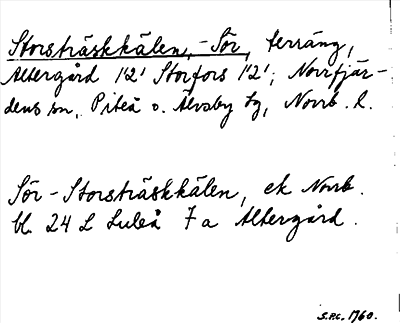 Storsträskkälen, -Sör, terräng,
Altergård 1/2! Storfors 1/2!; Norrfjär-
dens sn, Piteå o. Älvsby tg, Norrb. l.
Sör-Storsträskkälen, ek Norrb.
bl. 24 L Luleå 7 a Altergård.
S.P.C. 1760.